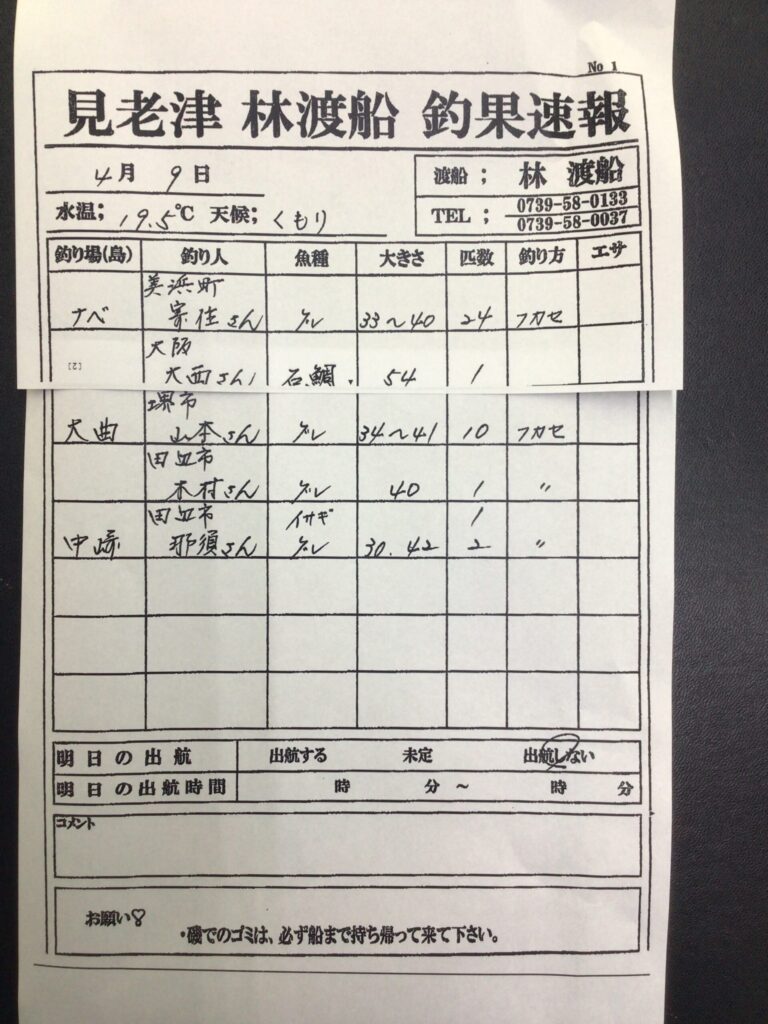 No 1
見老津 林渡船 釣果速報
4月 9日
渡船 ; 林 渡船
水温; 19.5℃ 天候; くもり
TEL ; 0739-58-0133
0739-58-0037
釣り場(島) 釣り人 魚種 大きさ 匹数 釣り方 エサ
美浜町
ナベ 寄住さん グレ 33〜40 24 フカセ
大阪
[2] 大西さん 石鯛 54 1
堺市
大曲 山本さん グレ 34〜41 10 フカセ
田辺市
木村さん グレ 40 1 〃
田辺市 イサギ 1
中崎 那須さん グレ 30.42 2 〃
明日の出航 出航する 未定 出航しない
明日の出航時間 時 分 〜 時 分
コメント
お願い
・磯でのゴミは、必ず船まで持ち帰って来て下さい。